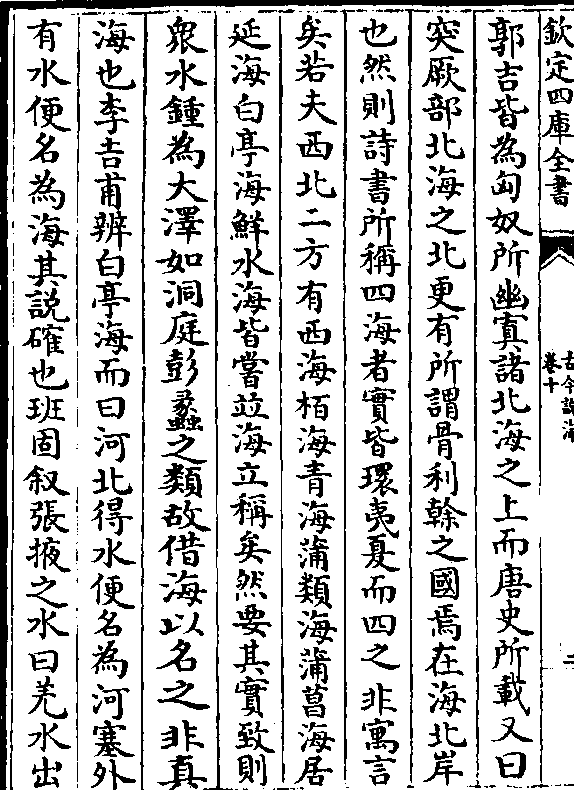 欽定四庫全書
古今說海
卷十
二
郭吉皆為匈奴所幽寘諸北海之上而唐史所載又曰
突厥部北海之北更有所謂骨利幹之國焉在海北岸
也然則詩書所稱四海者實皆環夷夏而四之非寓言
矣若夫西北二方有西海栢海青海蒲類海蒲菖海居
延海白亭海鮮水海皆嘗竝海立稱矣然要其實致則
衆水鍾為大澤如洞庭彭蠡之類故借海以名之非真
海也李吉甫辨白亭海而曰河北得水便名為河塞外
有水便名為海其説確也班固叙張掖之水曰羌水出